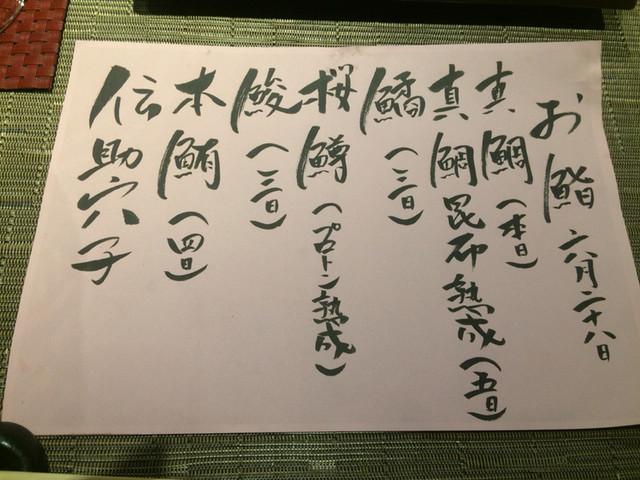 お鮨 六月二十八日
真鯛（本日）
真鯛昆布熟成（五日）
鱊（三日）
桜鱒（プロトン熟成）
鮻（三日）
本鮪（四日）
伝助穴子